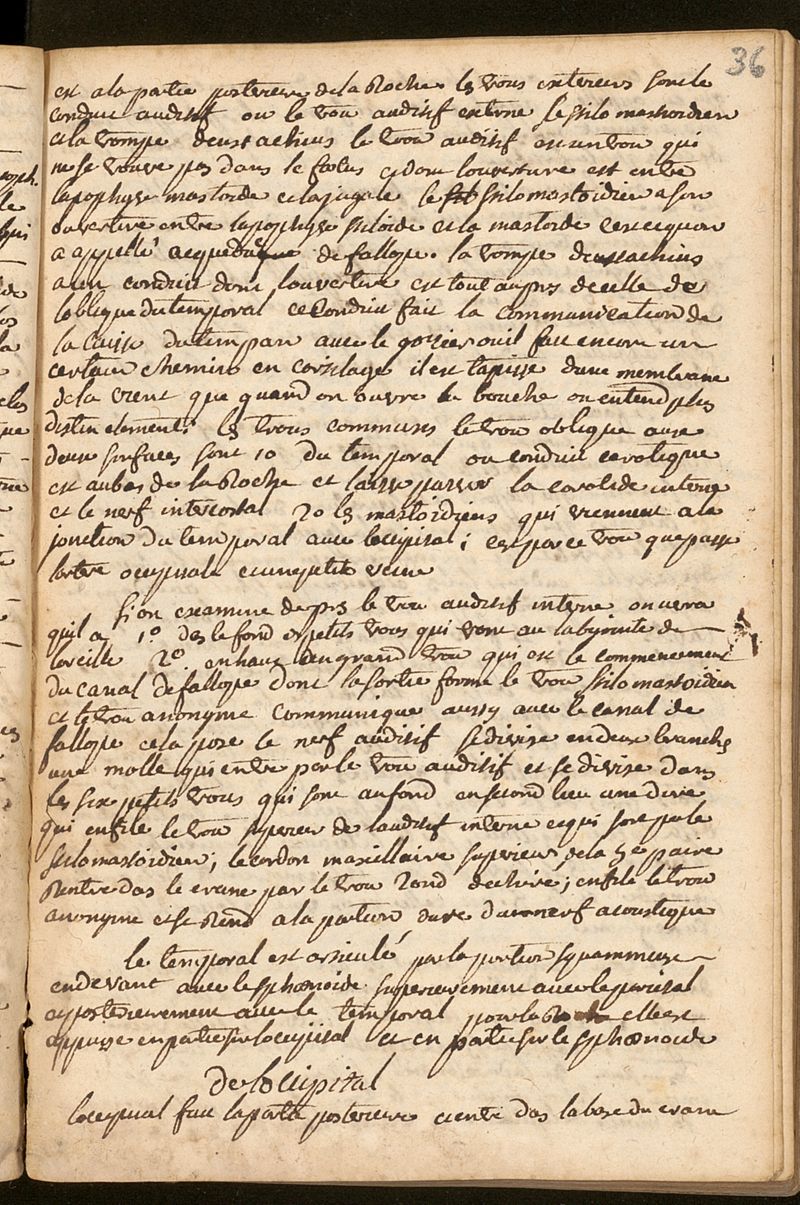 36
est a la partie posterieure de la Roche. les trous exterieurs sont le
conduit auditif ou le trou auditif externe le stilo mastoidien
et la trompe deustachius le trou auditif est un trou qui
ne se trouve pas dans le foetus et dont louverture est entre
lapophyse mastoide et la jugale le stilo mastoidien a son
ouverture entre lapophyse stiloide et la mastoide cest ce quon
a appellé acqueduc de fallope. la trompe deustachius
a un conduit dont louverture est tout aupres de celle de
loblique du temporal ce conduit fait la communication de
la caisse du tempan avec le gosier ou il fait encore un
certain chemin en cartilage il est tapissé dune membrane
de la vient que quand on ouvre la bouche on entend plus
distinctement. les trous communs le trou oblique aux
deux surfaces sont 10 du temporal ou conduit carotique
est au bas de la Roche et laisse passer la carotide interne
et le nerf intercostal 20 les mastoidiens qui viennent a la
jonction du temporal avec loccipital; cest par ce trou que passe
lartere occipitale et une petite veine
si on examine de pres le trou auditif interne on verra
quil a 1º dès le fond 6 petits trous qui vont au labyrinte de
loreille 2º en haut un grand trou qui est le commencement
du canal de fallope dont la sortie forme le trou stilo mastoidien
et le trou anonyme communique aussy avec le canal de
fallope cela posé le nerf auditif se divise en deux branches
une molle qui entre par le trou auditif et se divise dans
les six petits trous qui sont au fond en second lieu une dure
qui enfile le trou superieur de lauditif interne et qui sort par le
stilo mastoidien; le cordon maxillaire superieur de la 5e paire
Rentre das le crane par le trou Rond dechiré; enfile le trou
anonyme et se Rend a la portion dure du nerf acoustique
le temporal est articulé par la portion squammeuse
en devant avec le sphœnoide superieurement avec le parietal
et posterieurement avec le temporal pour la Roche elle est
appuyée en partie sur loccipital et en partie sur le sphœnoide
De loccipital
loccipital fait la partie posterieure et entre das la base du crane